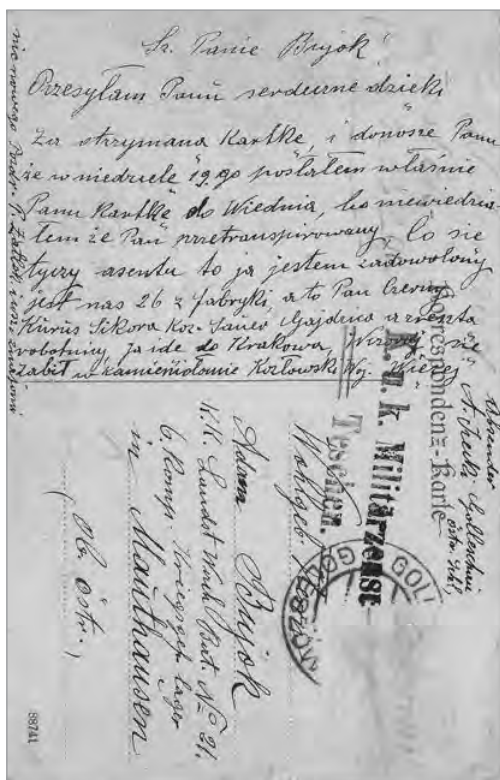 Sz. Panie Bujok!
Przesyłam Panu serdeczne dzieki
za otrzymana Kartke, i donosze Panu
że w niedziele 19.go posłałem właśnie
Panu Kartke do Wiednia, bo niewiedzia-
łem że Pan przetranspirowany, Co sie
tyczy asentu to ja jestem zadowolony
jest nas 26 z fabryki, a to Pan Czerny
Kurus Sikora Koz. Sance Gajdzica a reszta
robotnicy, ja ide do Krakowa, sie
zabił w kamieniołomie Kozłowski Woj. Wiecej
nic nowego Pozdr. P.
Correspondenz-Karte
K. u. k. Militärzensur
Teschen.
Golleschau
östr. Schl.
GOLESZÓW
Wohlgeb.
Adam Bujok
K.K. Landst. Wach Bat. No 21.
6. Komp. Kriegsgef. lager
in Mauthausen
(Ob. östr.)
88741